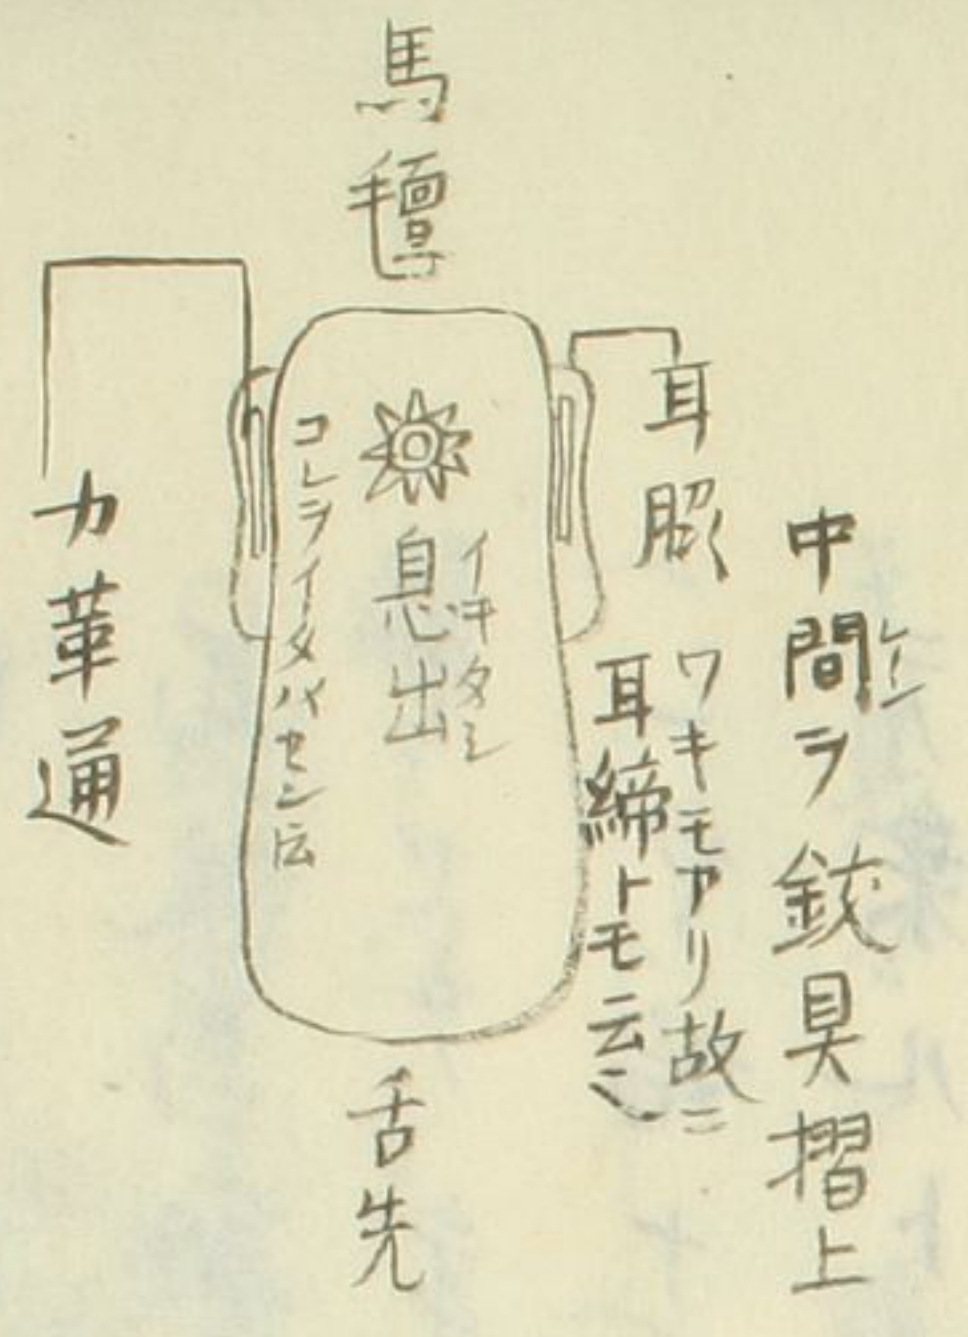 馬氈
中間ラ鉸具摺上
耳
ワキモアリ故ニ
耳締トモ云
イキタシ
息出
コレライタバセン云
力革通
舌先